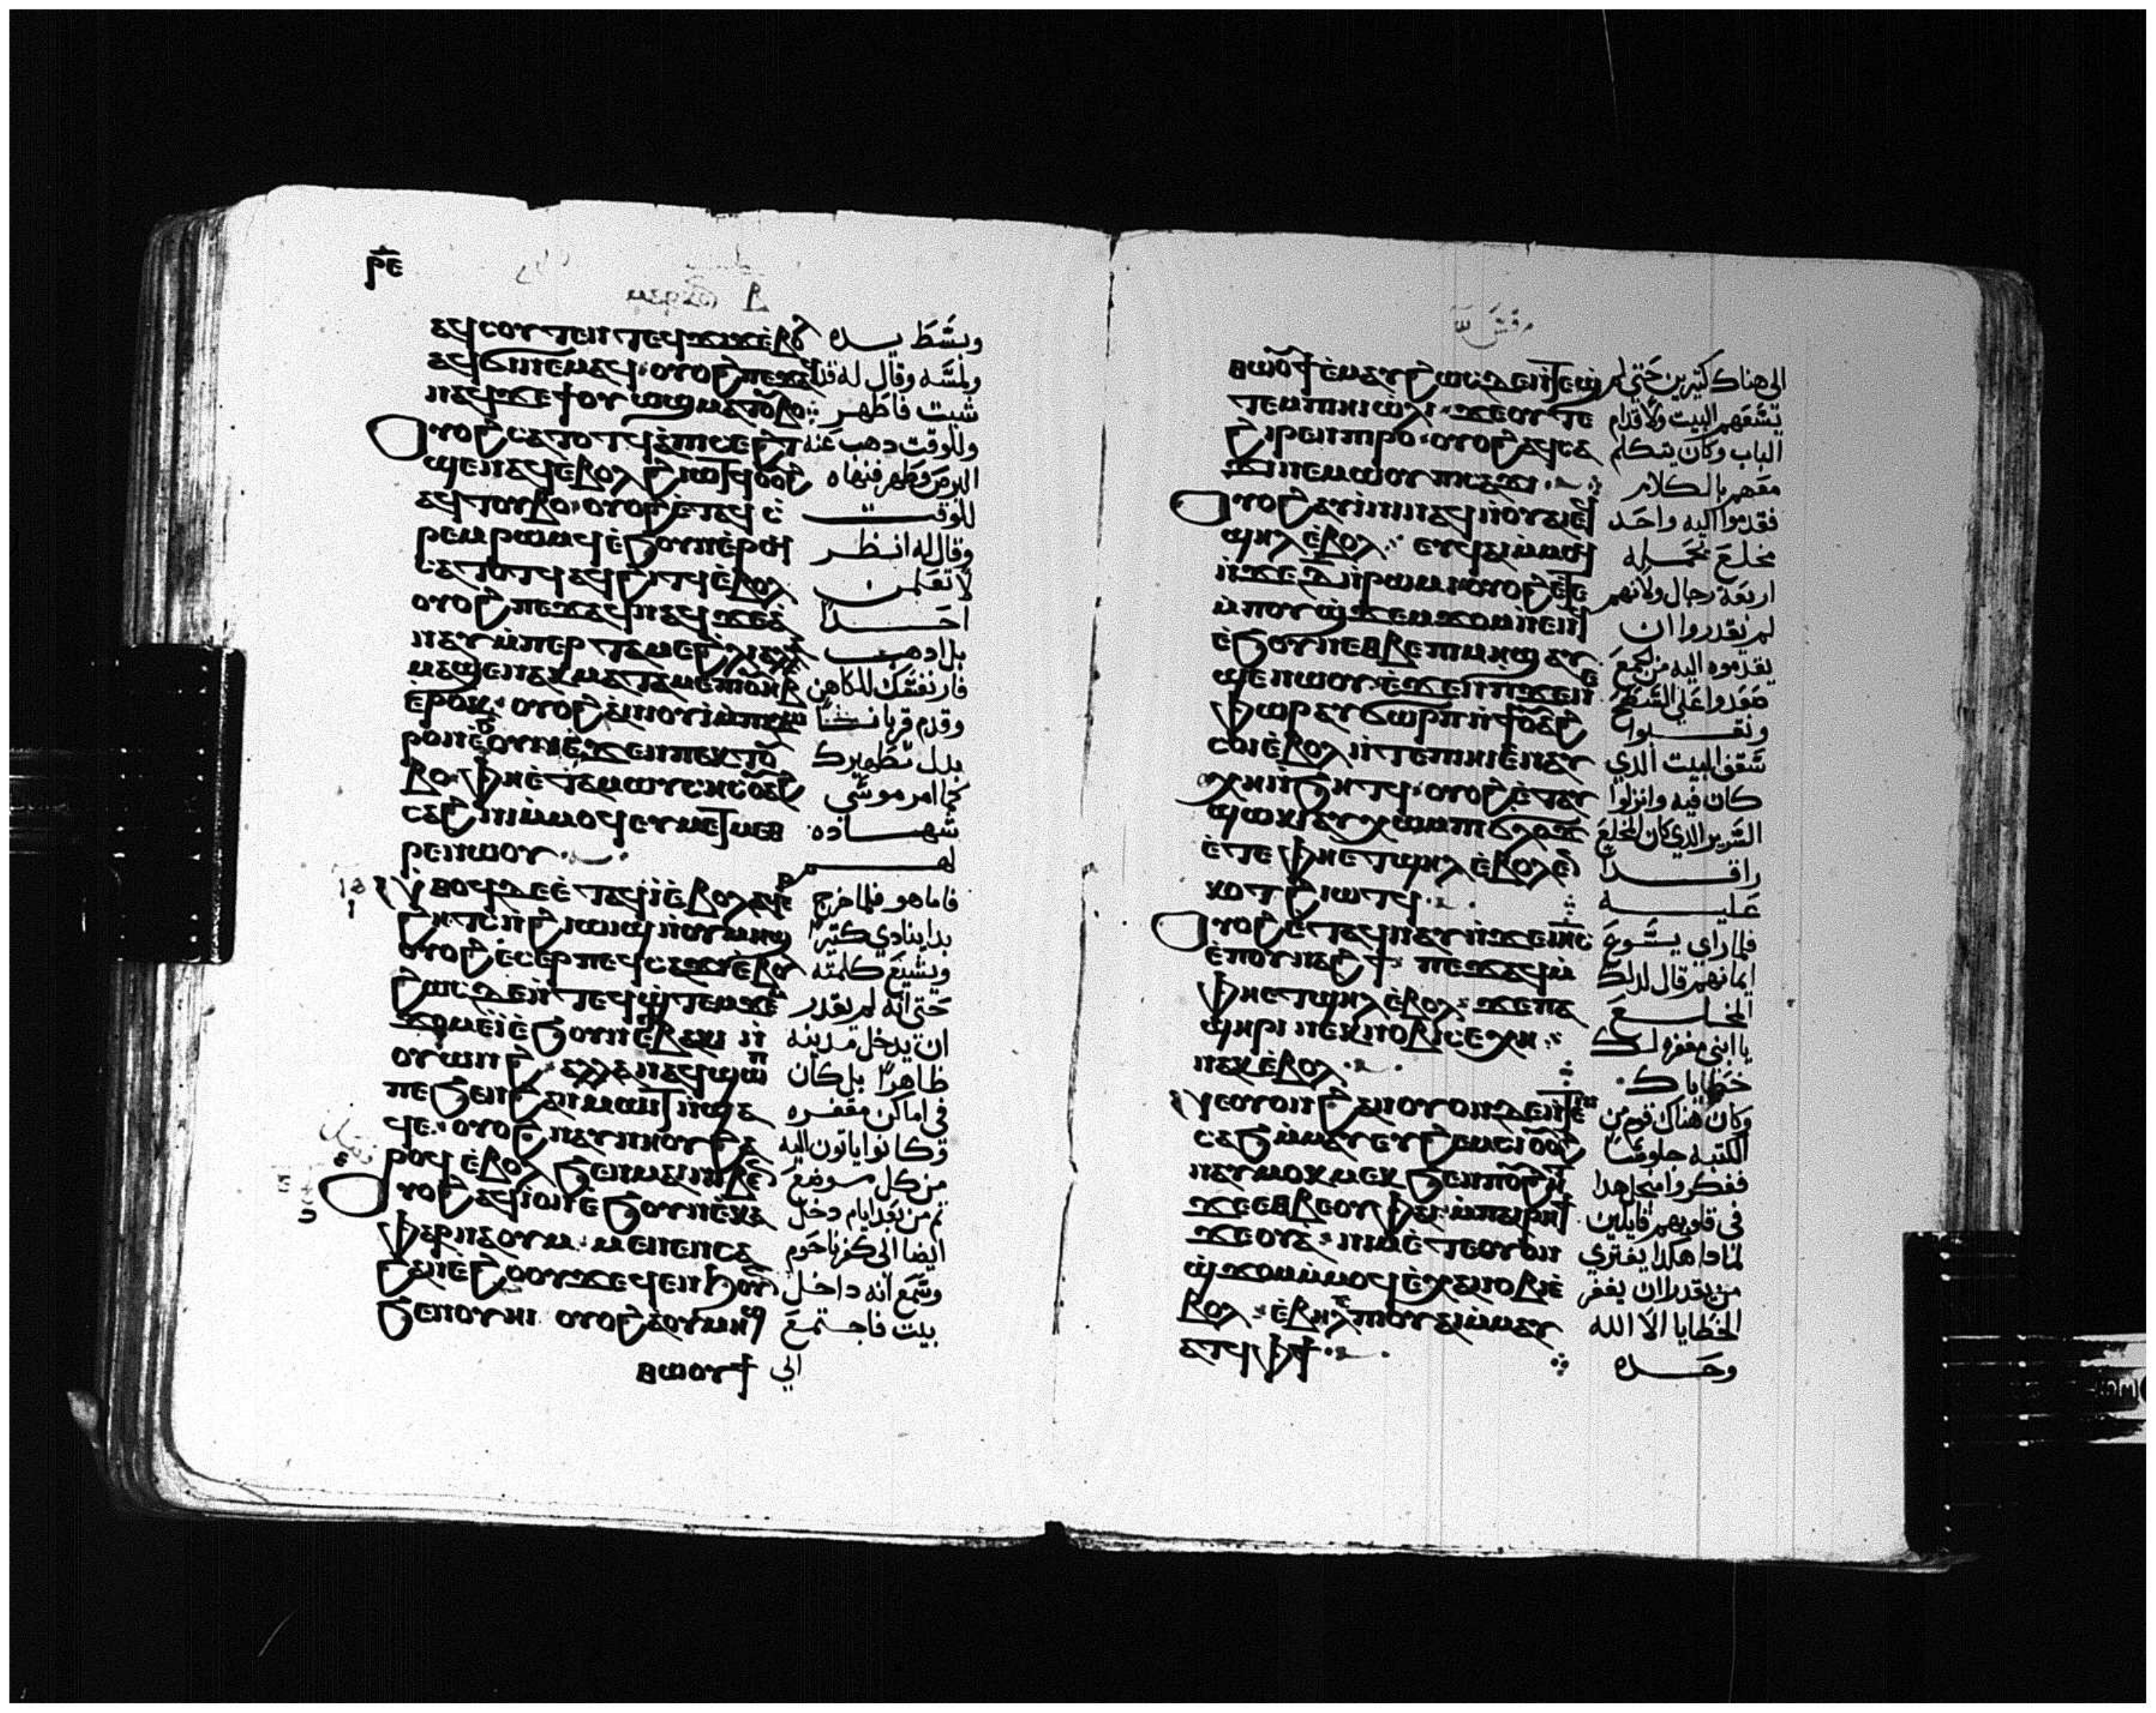 ⲣⲉ
ⲁϥⲥⲟⲩⲧⲉⲛ ⲧⲉϥϫⲓϫ ⲉⲃⲟⲗ
ⲁϥϭⲓ ⲛⲉⲙⲁϥ ⲟⲩⲟϩ ⲡⲉϫⲁϥ
ⲛⲁϥ ϫⲉ ϯⲟⲩⲱϣ ⲙⲁⲧⲟⲩⲃⲟ
ⲟⲩⲟϩ ⲥⲁⲧⲟⲧϥ ⲁⲡⲓⲥⲉϩⲧ
ϣⲉⲛⲁϥ ⲉⲃⲟⲗ ϩⲓⲱⲧϥ ⲟⲩⲟϩ
ⲁϥⲧⲟⲩⲃⲟ ⲟⲩⲟϩ ⲉⲧⲁϥ
ⲥⲁⲧⲟⲧϥ ⲁϥϩⲓⲧϥ ⲉⲃⲟⲗ
ⲟⲩⲟϩ ⲡⲉϫⲁϥ ⲛⲁϥ ϫⲉ ⲁ
ⲛⲁⲩ ⲙⲡⲉⲣⲧⲁⲙⲉ ϩⲗⲓ ⲁⲗⲗⲁ
ⲙⲁϣⲉⲛⲁⲕ ⲙⲁⲧⲁⲙⲉ ⲡⲓⲟⲩⲏⲃ
ⲉⲣⲟⲕ ⲟⲩⲟϩ ⲁⲛⲓⲟⲩⲓ ⲙⲡⲓⲇⲱ
ⲣⲟⲛ ⲉϧⲟⲩⲛ ⲉϫⲉⲛ ⲡⲉⲕⲧⲟⲩ
ⲃⲟ ⲫⲏ ⲉⲧⲁ ⲙⲱⲩⲥⲏⲥ ⲟⲩⲁϩ
ⲥⲁϩⲛⲓ ⲙⲙⲟϥ ⲉⲩⲙⲉⲧⲙⲉⲑ
ⲣⲉ ⲛⲱⲟⲩ
ⲛⲑⲟϥ ⲇⲉ ⲉⲧⲁϥⲓ ⲉⲃⲟⲗ ⲁϥⲉⲣ
ϩⲏⲧⲥ ⲛϩⲓⲱⲓϣ ⲛⲟⲩⲙⲏϣ
ⲟⲩⲟϩ ⲉⲥⲉⲣ ⲡⲉϥⲥⲁϫⲓ ⲉⲃⲟⲗ
ϩⲱⲥⲇⲉ ⲛⲧⲉϥϣⲧⲉⲙϫⲉⲙ
ϫⲟⲙ ⲉⲓ ⲉϧⲟⲩⲛ ⲉⲃⲁⲕⲓ ⲛ
ⲟⲩⲱⲛϩ ⲁⲗⲗⲁ ⲛⲁϥϣⲟⲡ
ⲡⲉ ϧⲉⲛ ϩⲁⲛⲙⲱⲓⲧ ⲛϣⲁ
ϥⲉ ⲟⲩⲟϩ ⲛⲁⲩⲛⲏⲟⲩ ϩⲁ
ⲣⲟϥ ⲉⲃⲟⲗ ϧⲉⲛ ⲙⲁⲓ ⲛⲓⲃⲉⲛ
ⲟⲩⲟϩ ⲁϥⲓ ⲟⲛ ⲉϧⲟⲩⲛ ⲉⲕⲁ
ⲫⲁⲣⲛⲁⲟⲩⲙ ⲙⲉⲛⲉⲛⲥⲁ
ϩⲁⲛⲉϩⲟⲟⲩ ϫⲉ ϥⲉⲛϧⲟⲩⲛ
ϧⲉⲛ ⲟⲩⲏⲓ ⲟⲩⲟϩ ⲁⲟⲩⲙⲏϣ
ⲑⲱⲟⲩϯ
وبسَّط يده
ولمسَّه وقال له قد
شيت فاطهر
وللوقت دهب عنه
البرص وطهر فنهاه
للوقت
وقال له انظر
لا تعلمن
احدًا
بل ادهب
فار نفسَك للكاهن
وقدم قربانًا
بدل تطهيرك
كما امر موسَّي
شهاده
لهم
فاما هو فلما خرج
بدا ينادي كثيرًا
ويشيع كلمته
حتى انه لم يقدر
ان يدخل مدينه
ظاهرًا بل كان
في اماكن مقفره
وكانوا ياتون اليه
من كل موضع
ثم من بعد ايام دخل
ايضا الى كفرناحوم
وسَّمع انه داخل
بيت فاجتمع
الي
ⲑⲱⲟⲩϯ ⲉⲙⲁⲩ ϩⲱⲥⲇⲉ ⲛⲧⲉϣ
ⲧⲉⲙ ⲡⲓⲏⲓ ϣⲟⲗⲓ ϫⲉ ⲟⲩⲧⲉ
ϩⲓⲣⲉⲛ ⲡⲣⲟ ⲟⲩⲟϩ ⲁϥⲥⲁ
ϫⲓ ⲛⲉⲙⲱⲟⲩ ⲡⲓⲥⲁϫⲓ
ⲟⲩⲟϩ ⲁⲩⲓⲛⲓ ⲛⲁϥ ⲛⲟⲩⲁⲓ ⲉϥ
ϣⲏⲗ ⲉⲃⲟⲗ ⲉⲩϥⲁⲓ ⲙⲙⲟϥ
ⲛϫⲉ ⲇ ⲛⲣⲱⲙⲓ ⲟⲩⲟϩ ⲉⲧⲉ
ⲙⲡⲟⲩϣϫⲉⲙϫⲟⲙ ⲛⲉⲛϥ
ⲉϧⲟⲩⲛ ⲉⲑⲃⲉ ⲡⲓⲙⲏϣ ⲁⲩ
ϣⲉⲛⲱⲟⲩ ⲉϫⲉⲛ ⲡϫⲉⲛ
ⲉⲫⲱⲣ ⲁⲩϭⲱⲣⲡ ⲛϯⲟⲩⲁϩ
ⲥⲟⲓ ⲉⲃⲟⲗ ⲛⲧⲉ ⲡⲓⲏⲓ ⲉⲛⲁⲩ
ⲭⲏ ⲛϧⲏⲧϥ ⲟⲩⲟϩ ⲉⲧⲁⲩ
ϣⲱⲕⲓ ⲁⲩⲭⲱ ⲙⲡⲓϭⲗⲟϫ
ⲉⲧⲉ ⲫⲏ ⲉⲧϣⲏⲗ ⲉⲃⲟⲗ ⲉⲛ
ⲕⲟⲧ ϩⲓⲱⲧϥ
ⲟⲩⲟϩ ⲉⲧⲁϥⲛⲁⲩ ⲛϫⲉ ⲓⲏⲥ
ⲉⲡⲟⲩⲛⲁϩϯ ⲡⲉϫⲁϥ ⲙ
ⲫⲏ ⲉⲧϣⲏⲗ ⲉⲃⲟⲗ ϫⲉ ⲡⲁ
ϣⲏⲣⲓ ⲛⲉⲕⲛⲟⲃⲓ ⲥⲉⲭⲏ
ⲛⲁⲕ ⲉⲃⲟⲗ
ⲛⲉ ⲟⲩⲟⲛ ϩⲁⲛⲟⲩⲟⲛ ⲇⲉ ⲛⲧⲉ ⲛⲓ
ⲥⲁϧ ⲙⲙⲁⲩ ⲉⲩϩⲉⲙⲥⲓ ⲟⲩⲟϩ
ⲛⲁⲩⲙⲟⲕⲙⲉⲕ ϧⲉⲛ ⲡⲟⲩϩⲏⲧ
ϫⲉ ⲉⲑⲃⲉⲟⲩ ⲫⲁⲓ ⲙⲡⲁⲓⲣⲏϯ
ϫⲉⲟⲩⲁ ⲛⲓⲙ ⲉⲧⲉ ⲟⲩⲟⲛ
ϣϫⲟⲙ ⲙⲙⲟϥ ⲉⲭⲁ ⲛⲟⲃⲓ ⲉ
ⲃⲟⲗ ⲉⲃⲏⲗ ⲉⲡⲟⲩⲁⲓ ⲙⲙⲁⲩ
ⲁⲧϥ ⲫϯ
الى هناك كثيرين حتى لم
تسَّعهم البيت ولا قدام
الباب وكان يتكلم
معهم بالكلام
فقدموا اليه واحد
مخلع تحمله
اربعة رجال ولانهم
لم يقدروا ان
يقدموه اليه من الجمع
صعدوا على السَّطح
ونقبوا
سَّقف البيت الدي
كان فيه وانزلوا
السَّرير الدي كان المخلع
راقدًا
عليه
فلما راي يسَّوع
ايمانهم قال لدلك
المخلع
يا ابنى مغفوره لك
خطاياك
وكان هناك قوم من
الكتبه جلوسًا
ففكروا منجل هدا
في قلوبهم قايلين
لمادا هكدا يفتري
من يقدر ان يغفر
الخطايا الا الله
وحده